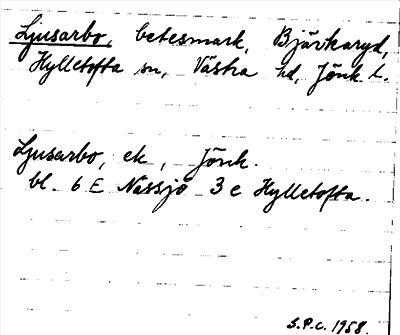 Ljusarbo, betesmark, Bjärkaryd,
Hylletofta sn, Västra hd, Jönk l.
Ljusarbo, ek, Jönk.
bl. 6 E Nässjö 3 e Hylletofta.
S.P.C. 1958.